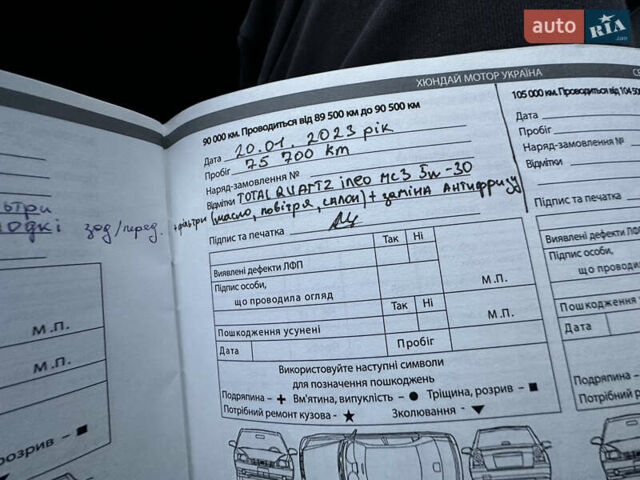 auto RIA .com
ХЮНДАЙ МОТОР УКРАЇНА
90 000 км. Проводиться від 89 500 км до 90 500 км
Дата 20.01.2023 рік
Пробіг 75 700 km
Наряд-замовлення №
Відмітки TOTAL QUARTZ ineo MC3 5w-30
+ фільтри (масло, повітря, салон) + заміна Антифризу
Підпис та печатка
Так Ні
Виявлені дефекти ЛФП
Підпис особи,
що проводила огляд
М.П.
Так Ні
Пошкодження усунені
Дата
Пробіг
Використовуйте наступні символи
для позначення пошкоджень
Подряпина - + Вм'ятина, випуклість - ● Тріщина, розрив - ■
Потрібний ремонт кузова - ★ Зколювання - ▼
зод/перед.
М.П.
М.П.
розрив - ■
105 000 км. Проводиться від 104 50
Дата
Пробіг
Наряд-замовлен
Відмітки
Підпис та печатка
Виявлені дефекти
Підпис особи,
що проводила
Пошкодження
Дата
Викори
для
Подряпина -
Потрібний ремо